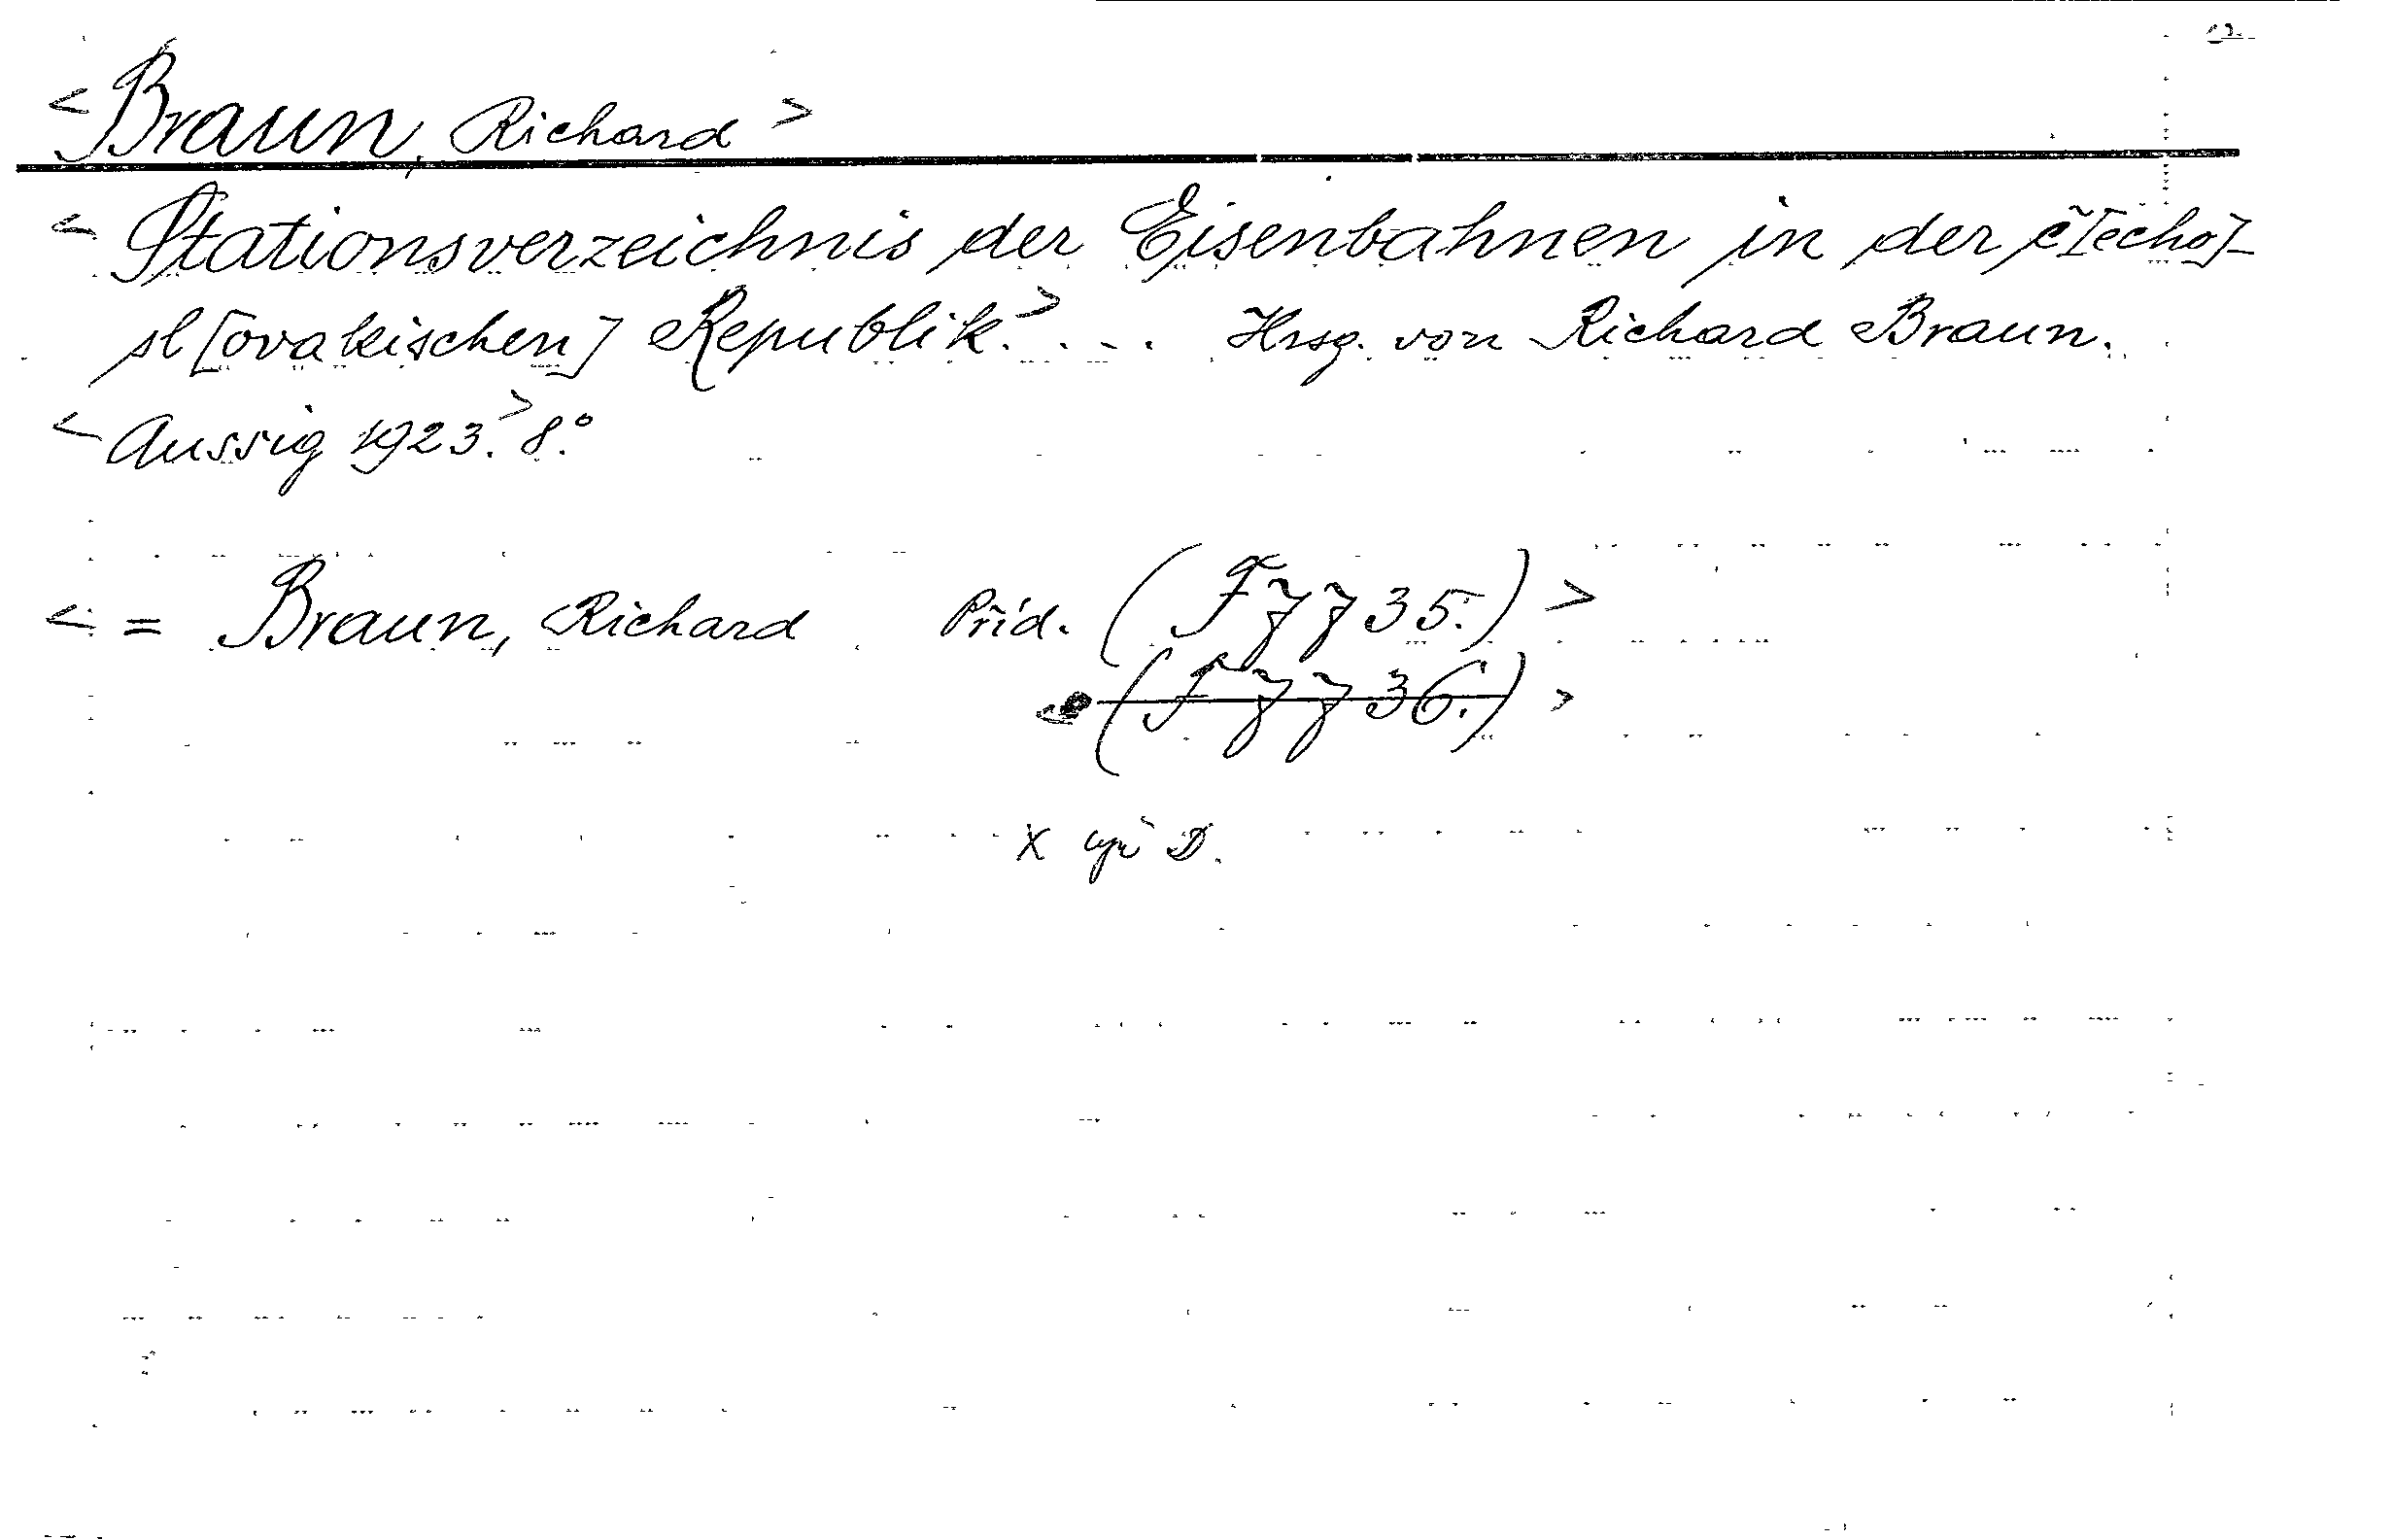 <Braun, Richard>
<Stationsverzeichnis der Eisenbahnen in der č[echo]-
sl[ovakischen] Republik.> ... Hrsg. von Richard Braun.
<Aussig 1923.> 8°.
<= Braun, Richard Příd. (F 7735.)>
<(F 7736.)>
X D.